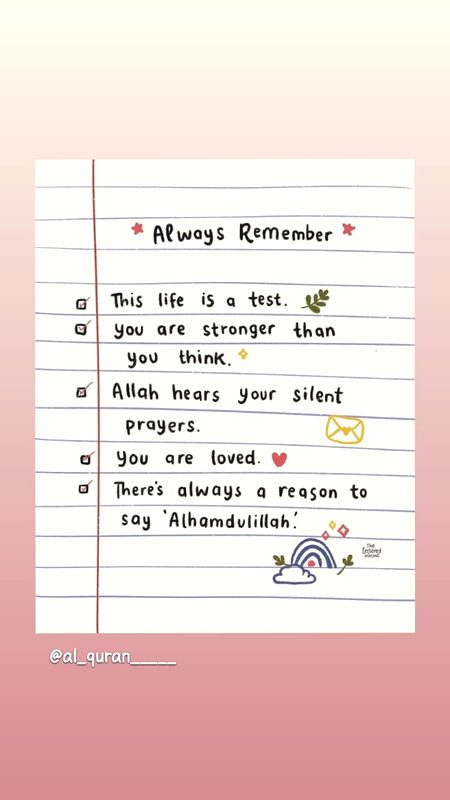 Always Remember
This life is a test.
you are stronger than
you think.
Allah hears your silent
prayers.
you are loved.
There's always a reason to
say 'Alhamdulillah.'
The
@al_quran_____